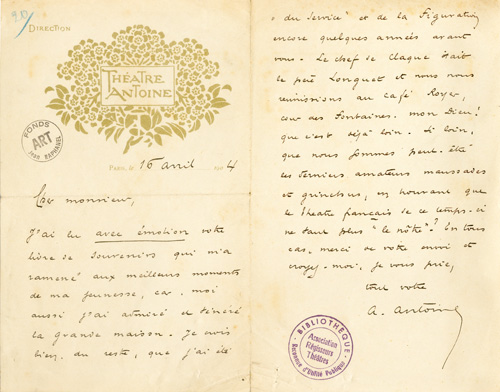 DIRECTION
THÉATRE
ANTOINE
FONDS
ART
PARIS, LE 16 avril 1904
Cher monsieur,
J'ai lu avec émotion votre
livre de souvenirs qui m'a
ramené aux meilleurs moments
de ma jeunesse, car, moi
aussi j'ai admiré et vénéré
la grande maison. Je crois
bien, du reste, que j'ai été
"du service" et de la figuration
encore quelques années avant
vous. Le chef de claque était
le père Longuet et nous nous
réunissions au café Royer,
cour des Fontaines. Mon Dieu!
que c'est déjà loin. Si loin,
que nous sommes peut-être
les derniers amateurs maussades
et grincheux, en trouvant que
le théâtre français de ce temps-ci
ne vaut plus "le nôtre"? En tous
cas, merci de votre envoi et
croyez-moi, je vous prie,
tout votre
A. Antoine
BIBLIOTHÈQUE
Association
Régisseurs
Théâtres
Reconnue d'Utilité Publique